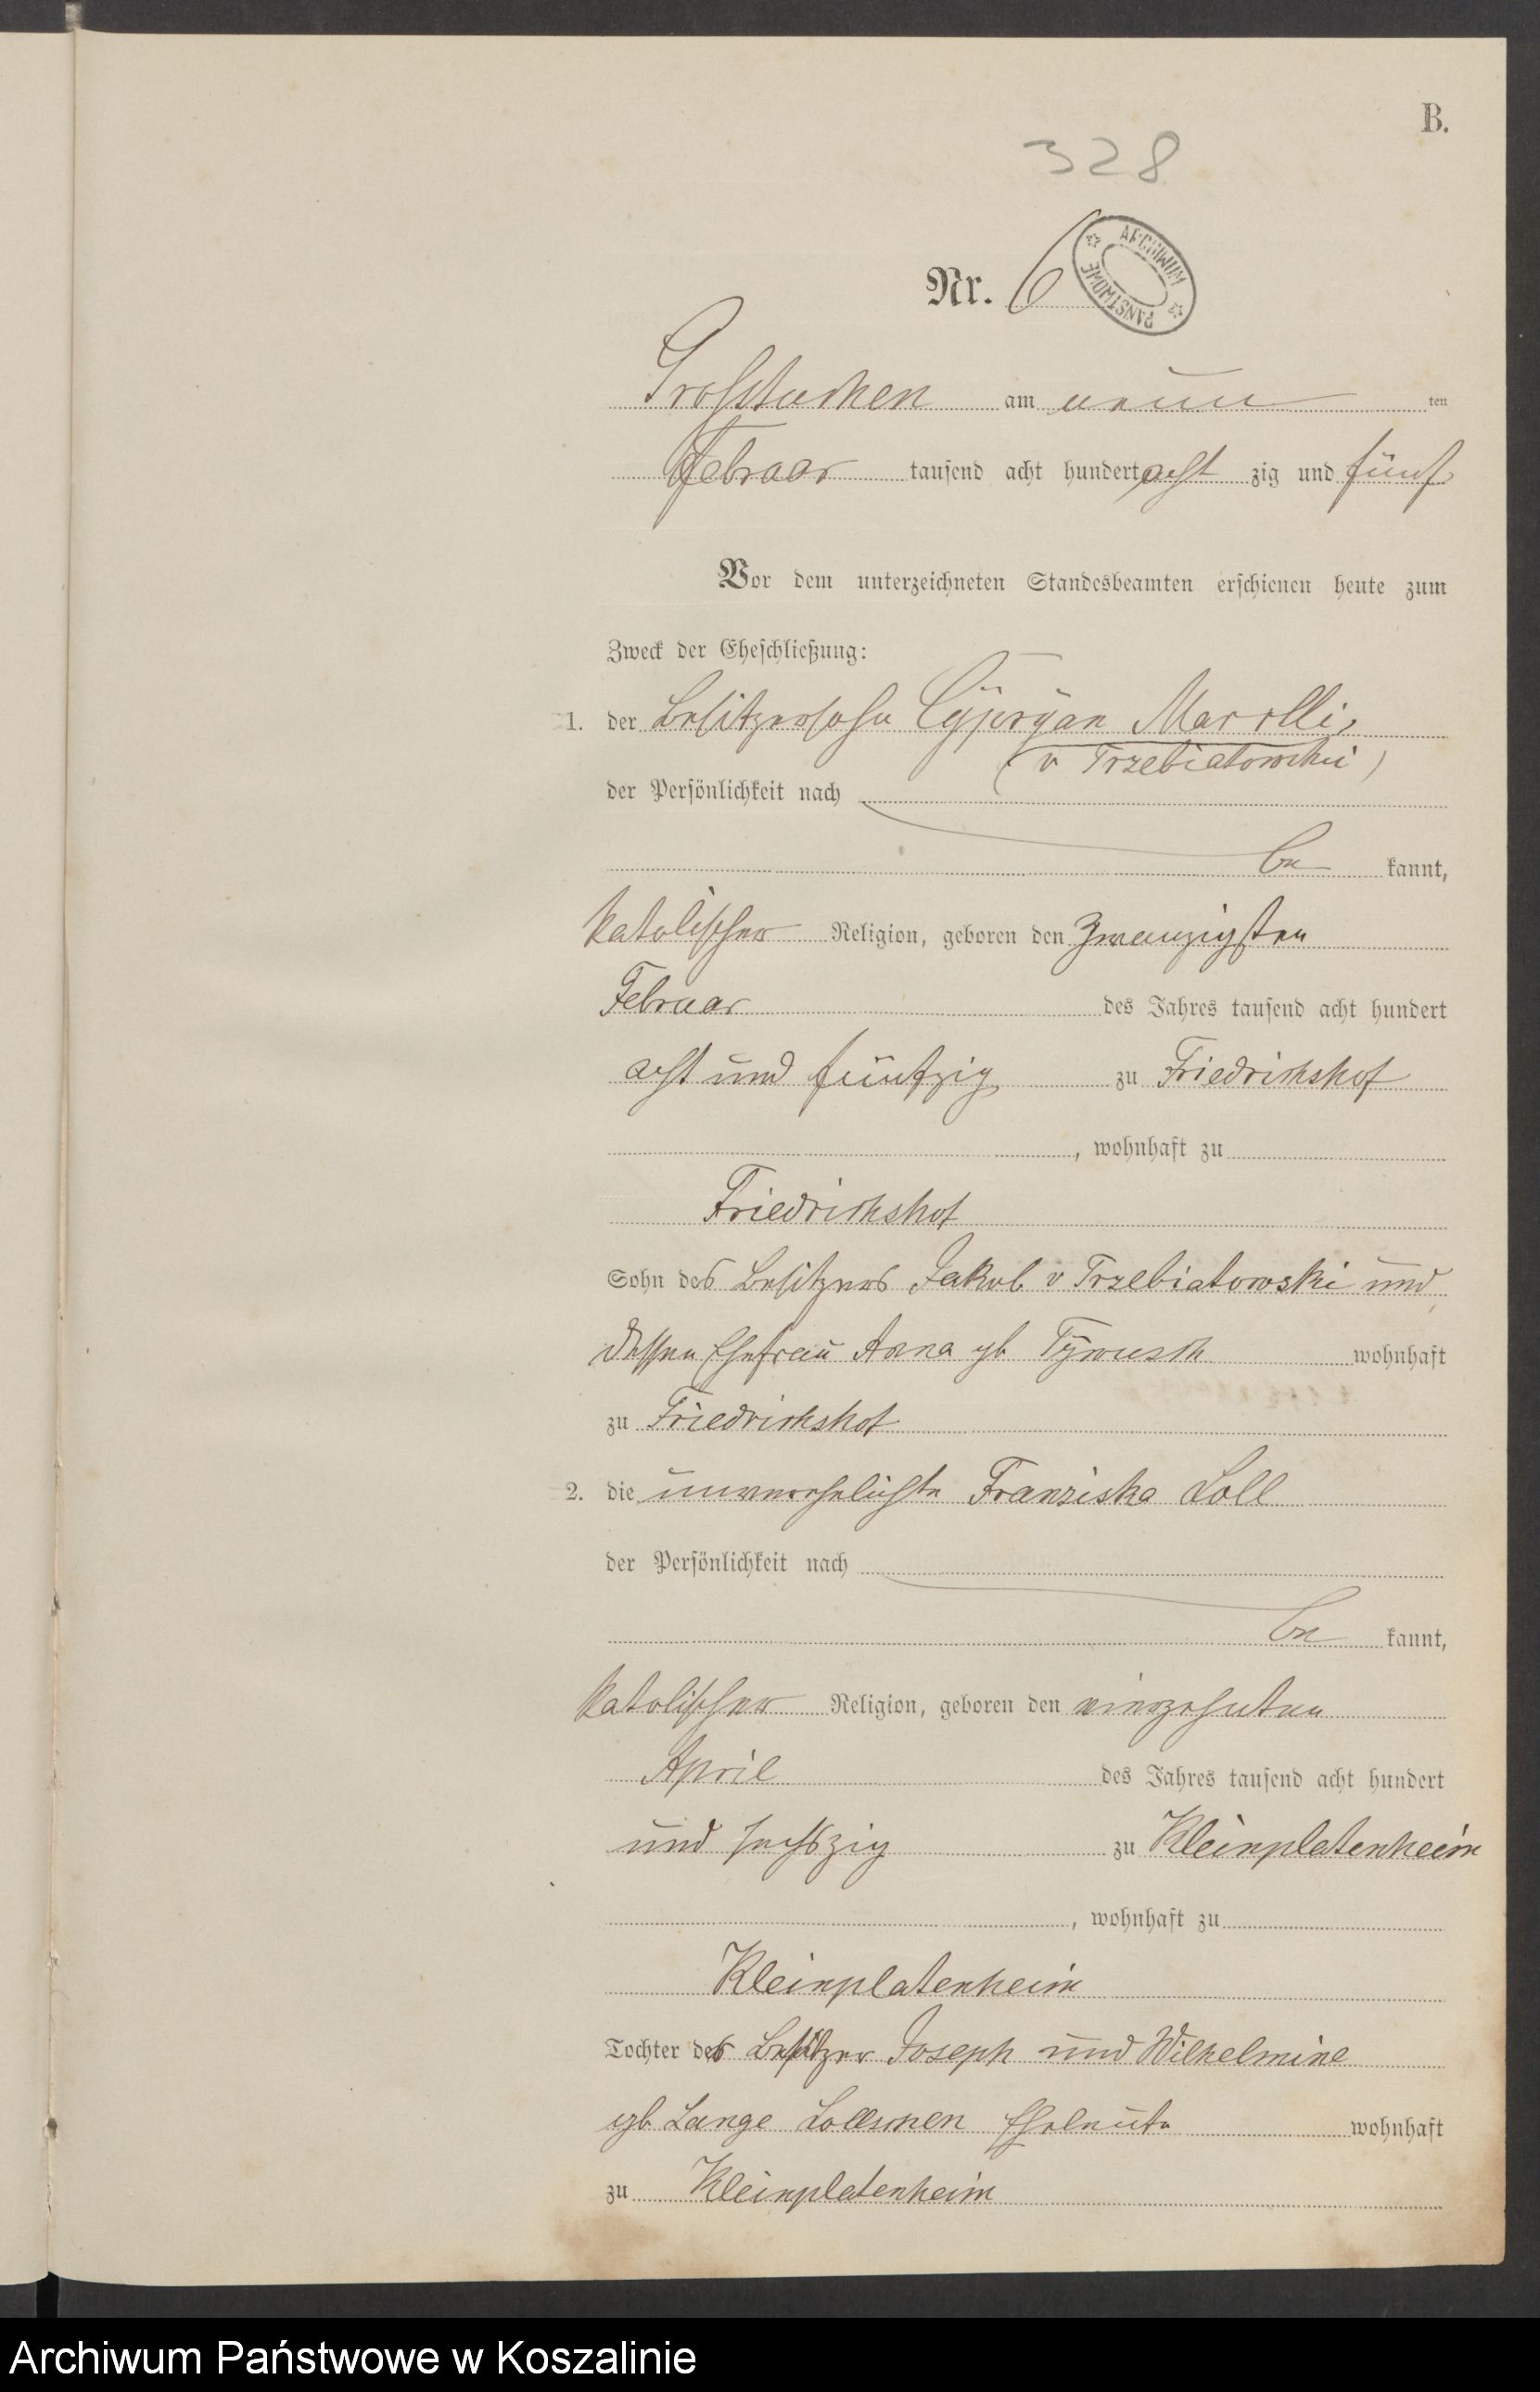 B.
328
Nr. 6
ARCHIWUM PAŃSTWOWE
Großtuchen am neun ten
Februar tausend acht hundert acht zig und fünf
Vor dem unterzeichneten Standesbeamten erschienen heute zum
Zweck der Eheschließung:
1. der Besitzersohn Cÿpryan
(v Trzebiatowski)
der Persönlichkeit nach
be kannt,
katolischer Religion, geboren den zwanzigsten
Februar des Jahres tausend acht hundert
acht und fünfzig zu Friedrichshof
, wohnhaft zu
Friedrichshof
Sohn des Besitzers Jakob v Trzebiatowski und
dessen Ehefrau Anna gb
wohnhaft
zu Friedrichshof
2. die unverehelichte Franziska Loll
der Persönlichkeit nach
be kannt,
katolischer Religion, geboren den vierzehnten
April des Jahres tausend acht hundert
und sechszig zu Kleinplatenheim
, wohnhaft zu
Kleinplatenheim
Tochter des Besitzer Joseph und Wilhelmine
gb Lange Lollschen Eheleute wohnhaft
zu Kleinplatenheim
Archiwum Państwowe w Koszalinie